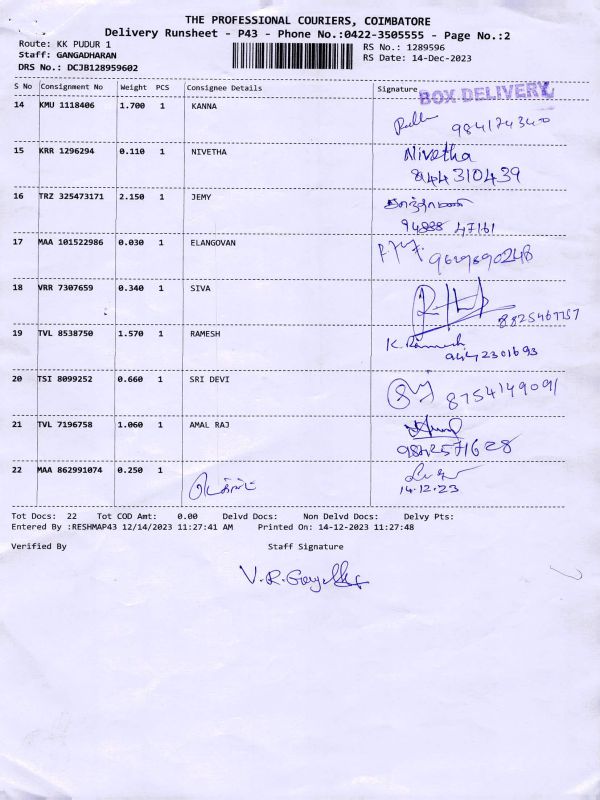 THE PROFESSIONAL COURIERS, COIMBATORE
Delivery Runsheet - P43 - Phone No.:0422-3505555 - Page No.:2
Route: KK PUDUR 1
Staff: GANGADHARAN
RS No.: 1289596
RS Date: 14-Dec-2023
DRS No.: DCJB128959602
S No Consignment No Weight PCS Consignee Details Signature
BOX DELIVERY
14 KMU 1118406 1.700 1 KANNA
9841743400
15 KRR 1296294 0.110 1 NIVETHA Nivetha
8144310439
16 TRZ 325473171 2.150 1 JEMY
94888 47161
17 MAA 101522986 0.030 1 ELANGOVAN
9629890248
18 VRR 7307659 0.340 1 SIVA
8825467757
19 TVL 8538750 1.570 1 RAMESH K. Ramesh
9442301693
20 TSI 8099252 0.660 1 SRI DEVI
8754149091
21 TVL 7196758 1.060 1 AMAL RAJ
9842571628
22 MAA 862991074 0.250 1
14.12.23
Tot Docs: 22 Tot COD Amt: 0.00 Delvd Docs: Non Delvd Docs: Delvy Pts:
Entered By :RESHMAP43 12/14/2023 11:27:41 AM Printed On: 14-12-2023 11:27:48
Verified By Staff Signature